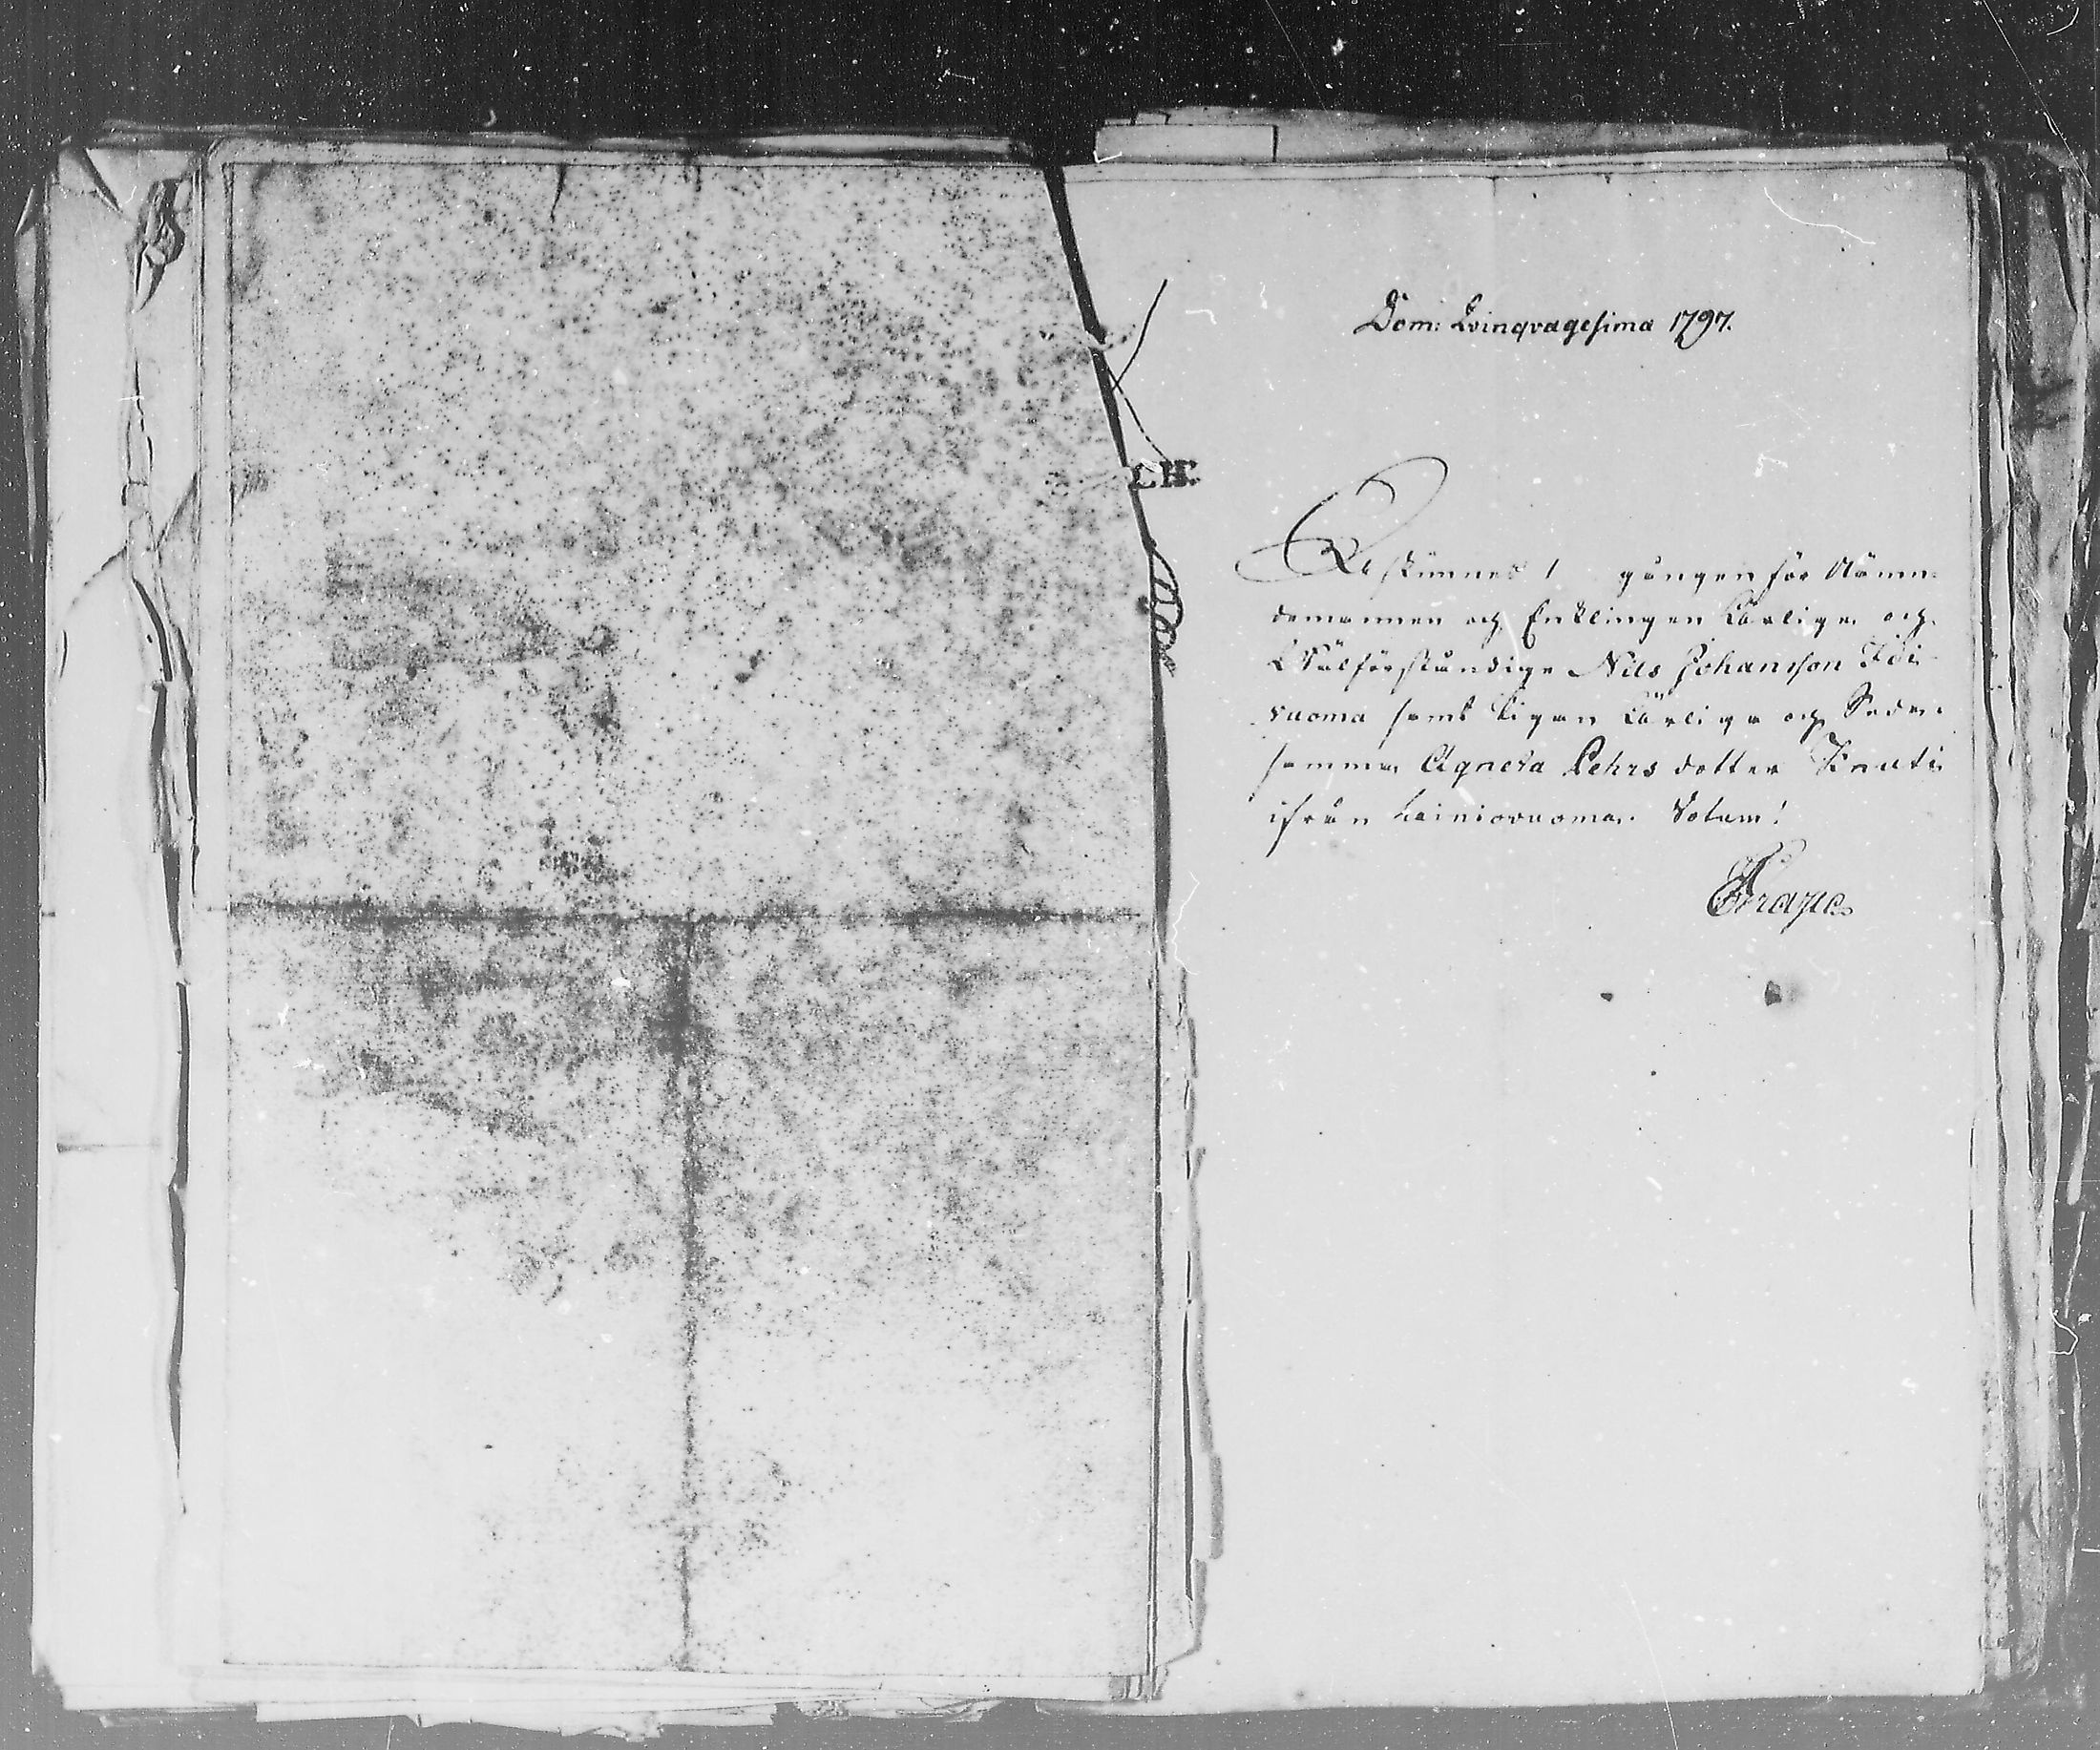 Dom: Qvinqvagesima 1797.
CH.
Afkunnes 1 gången för Nämn-
demannen och Enklingen Ärlige och
Wälförståndige Nils Johansson Idi-
vuoma samt Pigan Ärliga och Sede-
samma Agneta Pehrs dotter Knuti
ifrån Lainiovuoma. Votum!